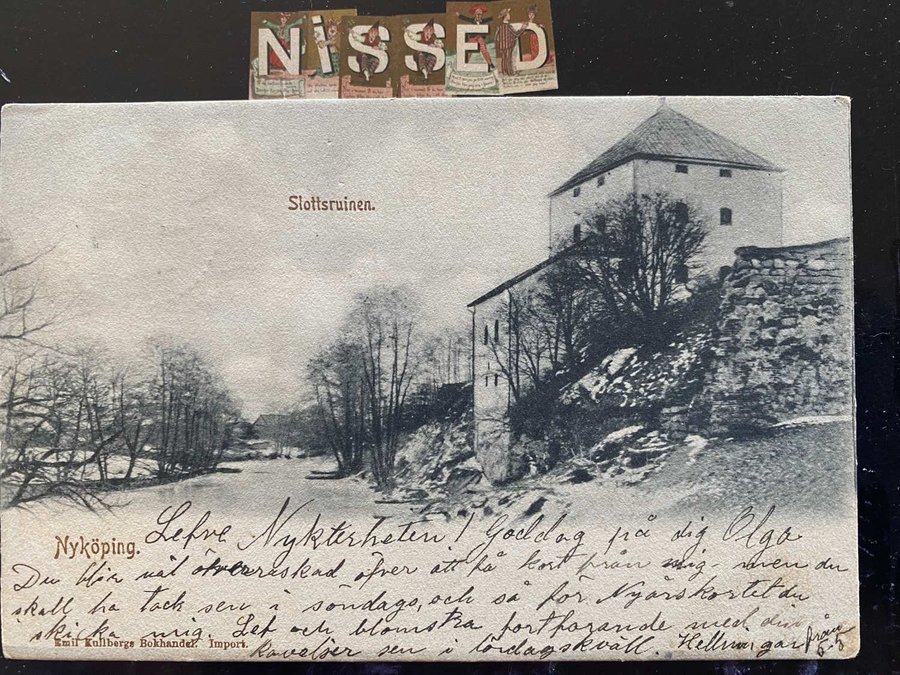 NISSED
Slottsruinen.
Nyköping.
Lefve Nykterheten! Goddag på dig Olga
Du blir väl öfverraskad öfver att få kort från mig men du
skall ha tack sen i söndags, och så för Nyårskortet du
skicka mig. Lef och blomstra fortfarande med din
kavaljer sen i lördagskväll. Helsningar från
Emil Kullbergs Bokhandel. Import.